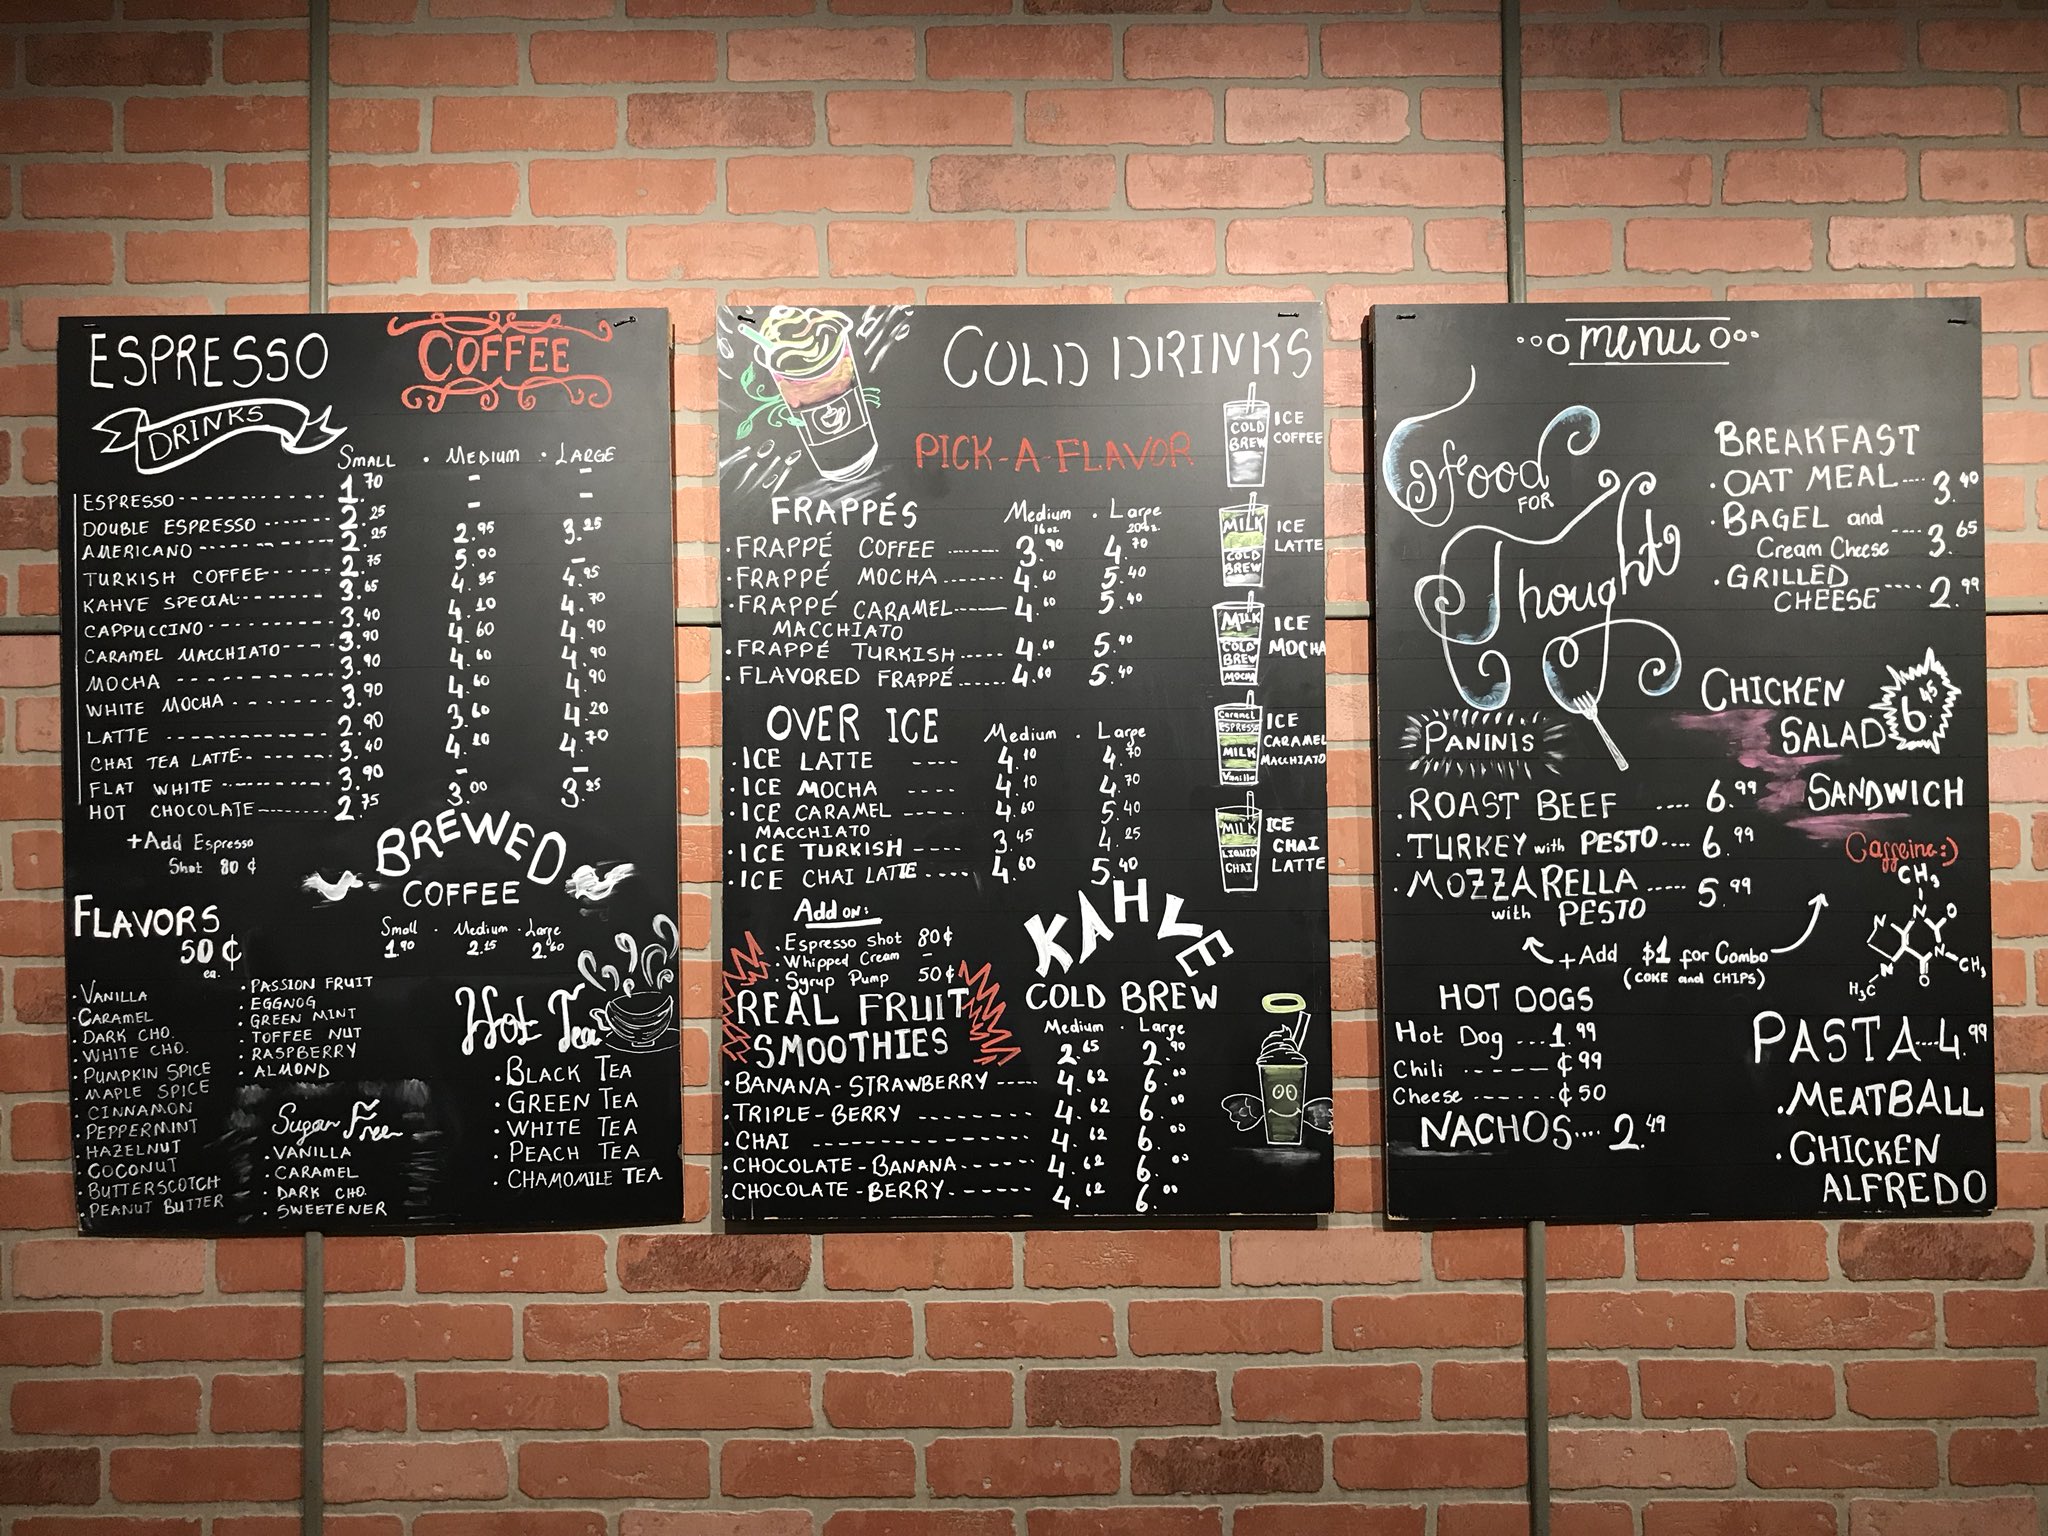 ESPRESSO
DRINKS
COFFEE
SMALL . MEDIUM . LARGE
ESPRESSO 1.70 - -
DOUBLE ESPRESSO 2.25 - -
AMERICANO 2.25 2.95 3.25
TURKISH COFFEE 2.75 5.00 -
KAHVE SPECIAL 3.65 4.35 4.95
CAPPUCCINO 3.40 4.10 4.70
CARAMEL MACCHIATO 3.90 4.60 4.90
MOCHA 3.90 4.60 4.90
WHITE MOCHA 3.90 4.60 4.90
LATTE 2.90 3.60 4.20
CHAI TEA LATTE 3.40 4.10 4.70
FLAT WHITE 3.90 - -
HOT CHOCOLATE 2.75 3.00 3.25
+Add Espresso
Shot 80 ¢
BREWED
COFFEE
Small . Medium . Large
1.90 2.15 2.60
FLAVORS
50 ¢
ea.
. VANILLA
. CARAMEL
. DARK CHO.
. WHITE CHO.
. PUMPKIN SPICE
. MAPLE SPICE
. CINNAMON
. PEPPERMINT
. HAZELNUT
. COCONUT
. BUTTERSCOTCH
. PEANUT BUTTER
. PASSION FRUIT
. EGGNOG
. GREEN MINT
. TOFFEE NUT
. RASPBERRY
. ALMOND
Sugar Free
. VANILLA
. CARAMEL
. DARK CHO.
. SWEETENER
Hot Tea
. BLACK TEA
. GREEN TEA
. WHITE TEA
. PEACH TEA
. CHAMOMILE TEA
COLD DRINKS
PICK-A-FLAVOR
FRAPPÉS Medium . Large
16oz. 20oz.
. FRAPPÉ COFFEE 3.90 4.70
. FRAPPÉ MOCHA 4.60 5.40
. FRAPPÉ CARAMEL 4.60 5.40
MACCHIATO
. FRAPPÉ TURKISH 4.60 5.40
. FLAVORED FRAPPÉ 4.60 5.40
OVER ICE Medium . Large
. ICE LATTE 4.10 4.70
. ICE MOCHA 4.10 4.70
. ICE CARAMEL 4.60 5.40
MACCHIATO
. ICE TURKISH 3.45 4.25
. ICE CHAI LATTE 4.60 5.40
Add on:
. Espresso shot 80¢
. Whipped Cream -
. Syrup Pump 50¢
KAHVE
COLD BREW
Medium . Large
2.65 2.90
REAL FRUIT
SMOOTHIES
. BANANA-STRAWBERRY 4.62 6.00
. TRIPLE-BERRY 4.62 6.00
. CHAI 4.62 6.00
. CHOCOLATE-BANANA 4.62 6.00
. CHOCOLATE-BERRY 4.62 6.00
COLD
BREW
ICE
COFFEE
MILK
COLD
BREW
ICE
LATTE
MILK
COLD
BREW
MOCHA
ICE
MOCHA
Caramel
ESPRESSO
MILK
Vanilla
ICE
CARAMEL
MACCHIATO
MILK
LIQUID
CHAI
ICE
CHAI
LATTE
menu
food
FOR
Thought
BREAKFAST
. OAT MEAL 3.40
. BAGEL and
Cream Cheese 3.65
. GRILLED
CHEESE 2.99
CHICKEN
SALAD 6.45
SANDWICH
PANINIS
. ROAST BEEF .... 6.99
. TURKEY with PESTO 6.99
. MOZZARELLA 5.99
with PESTO
+Add $1 for Combo
(COKE and CHIPS)
Caffeine :)
CH₃
N
O
N
N
CH₃
N
O
H₃C
HOT DOGS
Hot Dog 1.99
Chili ¢99
Cheese ¢50
NACHOS.... 2.49
PASTA....4.99
. MEATBALL
. CHICKEN
ALFREDO